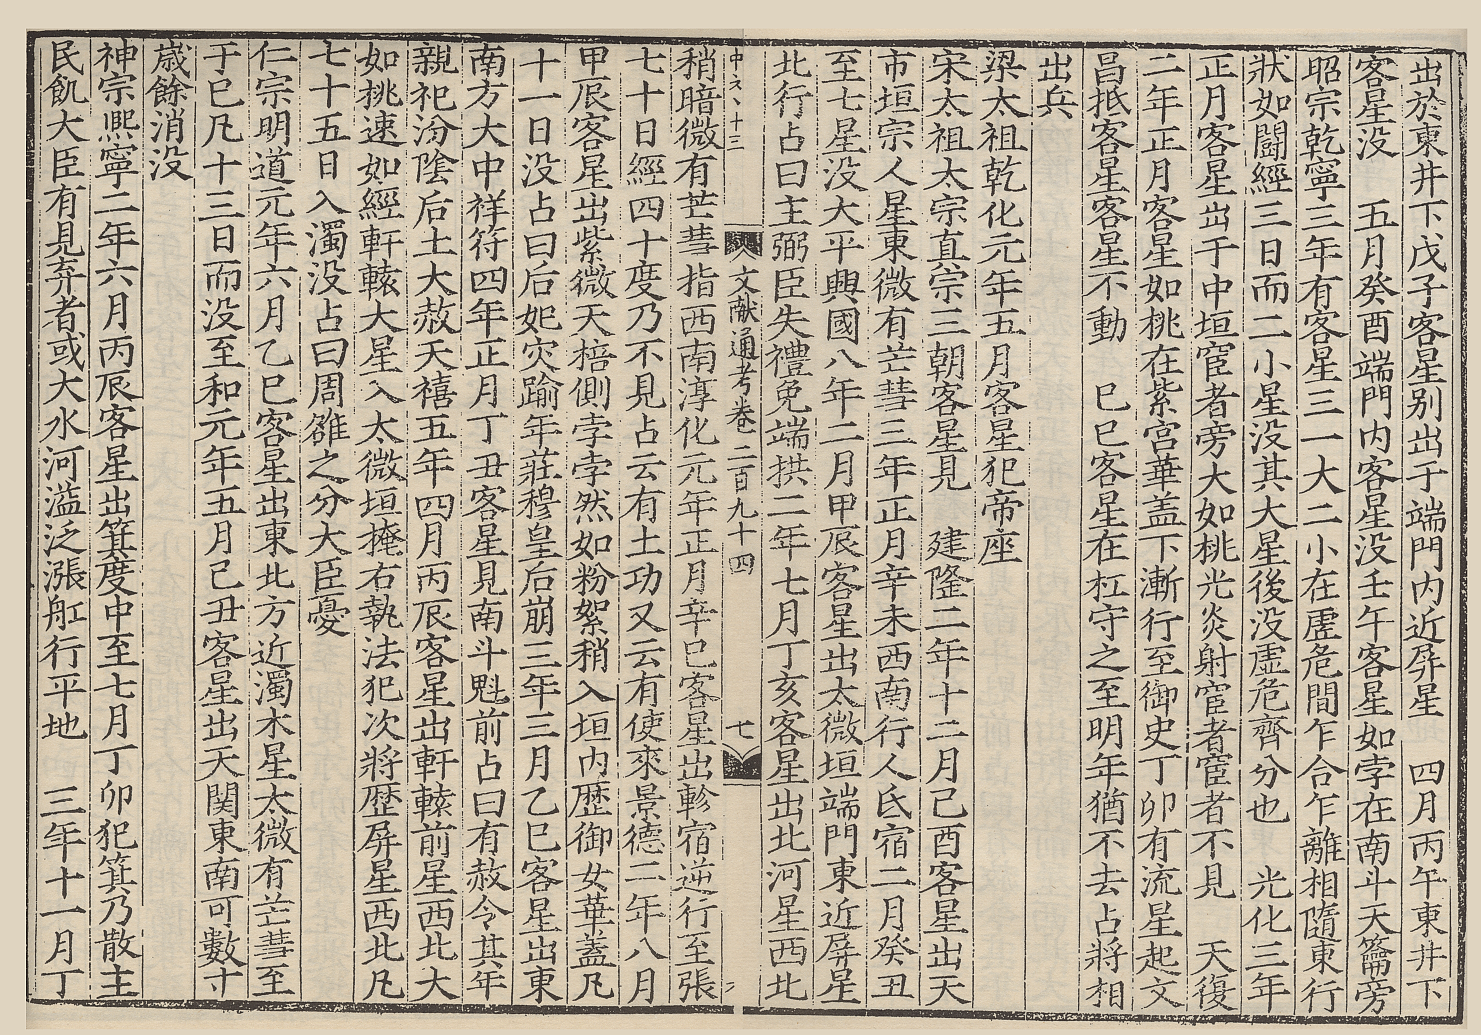 出於東井下戊子客星别出于端門内近屏星　四月丙午東井下
客星没　五月癸酉端門内客星没壬午客星如孛在南斗天籥旁
昭宗乾寧三年有客星三一大二小在虚危間乍合乍離相隨東行
狀如鬭經三日而二小星没其大星後没虚危齊分也　光化三年
正月客星出于中垣宦者旁大如桃光炎射宦者宦者不見　天復
二年正月客星如桃在紫宫華盖下漸行至御史丁卯有流星起文
昌抵客星客星不動　巳巳客星在杠守之至明年猶不去占將相
出兵
梁太祖乾化元年五月客星犯帝座
宋太祖太宗直宗三朝客星見　建隆二年十二月己酉客星出天
市垣宗人星東微有芒彗三年正月辛未西南行入氐宿二月癸丑
至七星没大平興國八年二月甲辰客星出太微垣端門東近屏星
北行占曰主弼臣失禮免端拱二年七月丁亥客星出北河星西北
文献通考卷二百九十四
七
稍暗微有芒彗指西南淳化元年正月辛巳客星出軫宿逆行至張
七十日經四十度乃不見占云有土功又云有使來景德二年八月
甲辰客星出紫微天棓側孛孛然如粉絮稍入垣内歴御女華蓋凡
十一日没占曰后妃灾踰年莊穆皇后崩三年三月乙巳客星出東
南方大中祥符四年正月丁丑客星見南斗魁前占曰有赦令其年
親祀汾陰后土大赦天禧五年四月丙辰客星出軒轅前星西北大
如桃速如經軒轅大星入太微垣掩右執法犯次將歴屏星西北凡
七十五日入濁没占曰周雒之分大臣憂
仁宗明道元年六月乙巳客星出東北方近濁木星太微有芒彗至
于已凡十三日而没至和元年五月己丑客星出天関東南可數寸
歳餘消没
神宗熈寧二年六月丙辰客星出箕度中至七月丁卯犯箕乃散主
民飢大臣有見弃者或大水河溢泛漲舡行平地　三年十一月丁